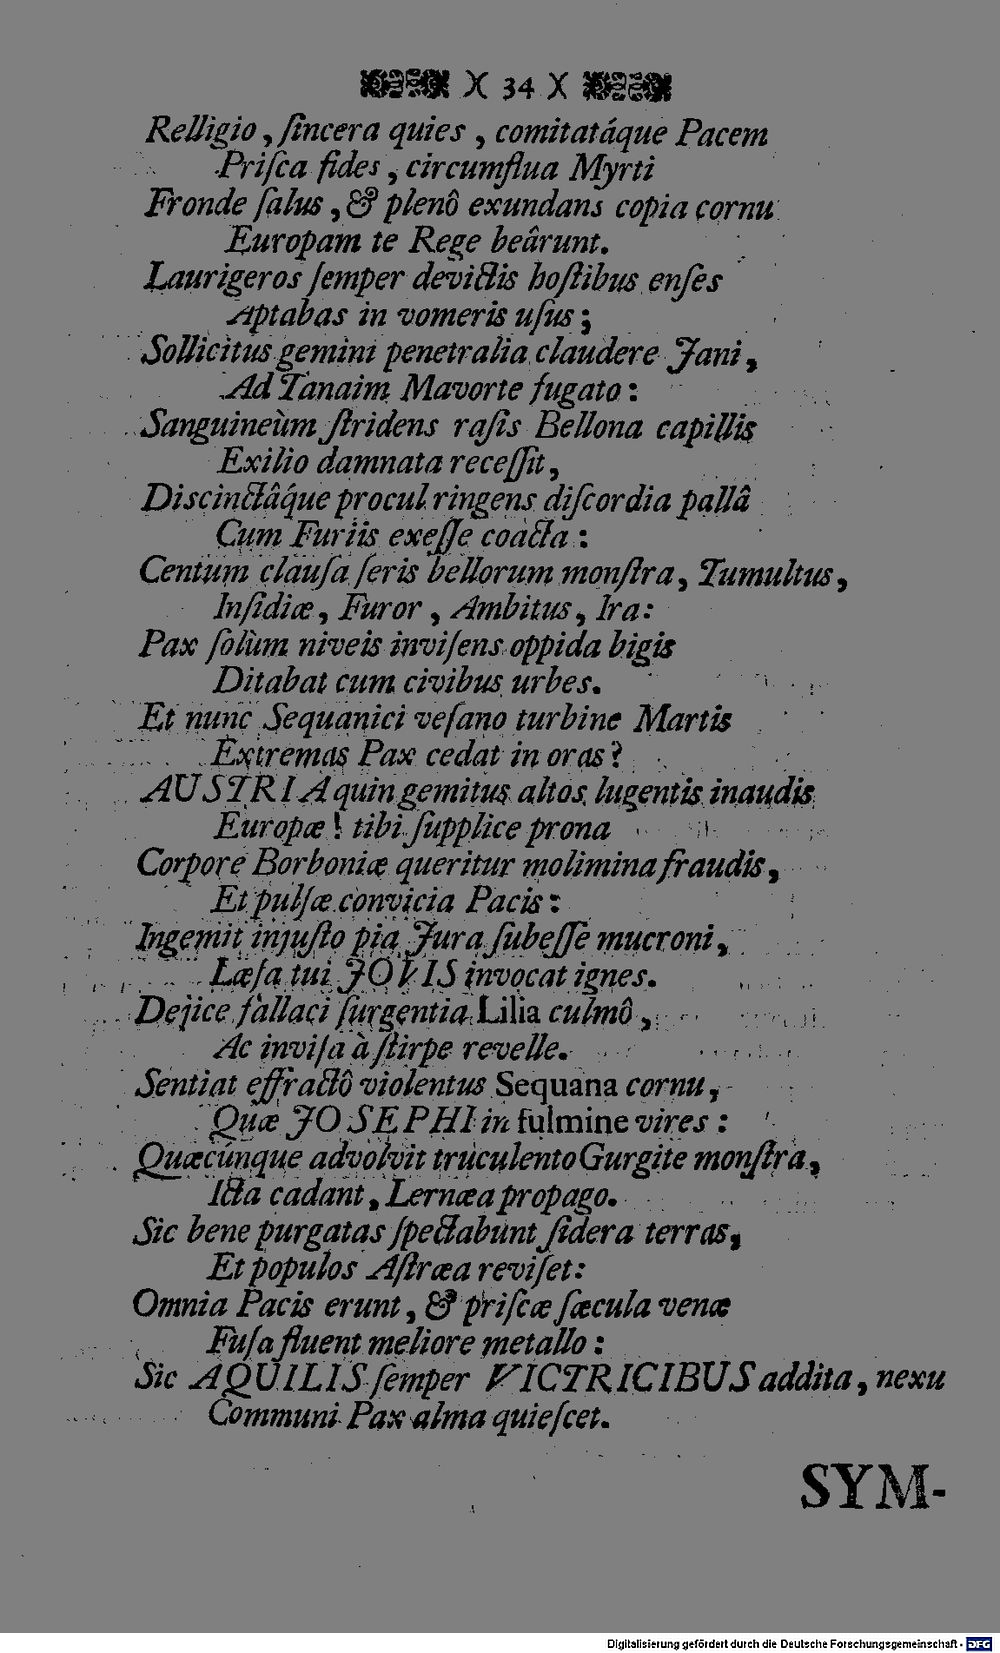 )( 34 )(
Relligio, ſincera quies, comitatáque Pacem
Priſca fides, circumflua Myrti
Fronde ſalus, & plenô exundans copia cornu
Europam te Rege beârunt.
Laurigeros ſemper devictis hoſtibus enſes
Aptabas in vomeris uſus;
Sollicitus gemini penetralia claudere Jani,
Ad Tanaim Mavorte fugato:
Sanguineùm ſtridens raſis Bellona capillis
Exilio damnata receſſit,
Discinctâáque procul ringens diſcordia pallâ
Cum Furiis exeſſe coacta:
Centum clauſa ſeris bellorum monſtra, Tumultus,
Inſidiæ, Furor, Ambitus, Ira:
Pax ſolùm niveis inviſens oppida bigis
Ditabat cum civibus urbes.
Et nunc Sequanici veſano turbine Martis
Extremas Pax cedat in oras?
AUSTRIA quin gemitus altos lugentis inaudis
Europæ! tibi ſupplice prona
Corpore Borboniæ queritur molimina fraudis,
Et pulſæ convicia Pacis:
Ingemit injuſto pia Jura ſubeſſe mucroni,
Læſa tui JOVIS invocat ignes.
Dejice fallaci ſurgentia Lilia culmô,
Ac inviſa à ſtirpe revelle.
Sentiat effractô violentus Sequana cornu,
Quæ JOSEPHI in fulmine vires:
Quæcunque advolvit truculento Gurgite monſtra,
Icta cadant, Lernæa propago.
Sic bene purgatas ſpectabunt ſidera terras,
Et populos Aſtræa reviſet:
Omnia Pacis erunt, & priſcæ ſæcula venæ
Fuſa fluent meliore metallo:
Sic AQUILIS ſemper VICTRICIBUS addita, nexu
Communi Pax alma quieſcet.
SYM-
Digitalisierung gefördert durch die Deutsche Forschungsgemeinschaft - DFG